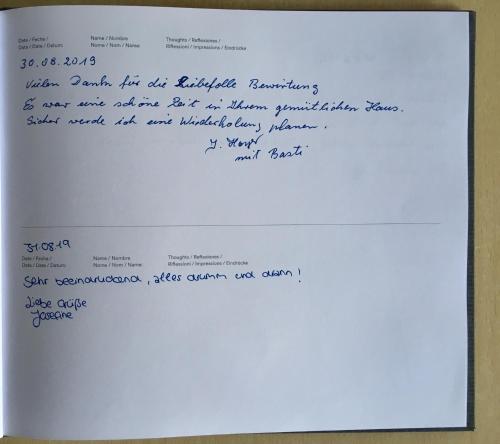 Date / Fecha / Name / Nombre Thoughts / Reflexiones /
Date / Data / Datum: Nome / Nom / Name: Riflessioni / Impressions / Eindrücke
30.08.2019
Vielen Dank für die Liebefolle Bewirtung
Es war eine schöne Zeit in Ihrem gemütlichen Haus.
Sicher werde ich eine Wiederholung planen.
J.
mit Basti
31.08.19
Date / Fecha / Name / Nombre Thoughts / Reflexiones /
Date / Data / Datum: Nome / Nom / Name: Riflessioni / Impressions / Eindrücke
Sehr beeindruckend, alles drumm und drann!
Liebe Grüße
Josefine